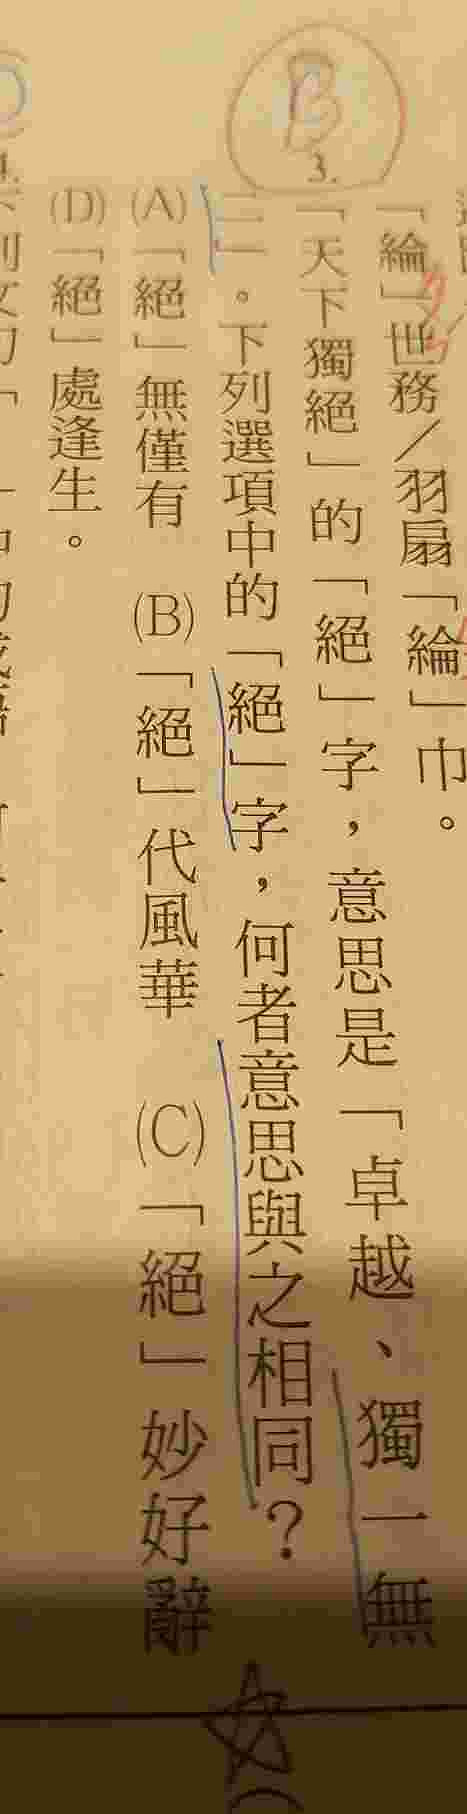 「綸」世務／羽扇「綸」巾。
B
3.
「天下獨絕」的「絕」字，意思是「卓越、獨一無
二」。下列選項中的「絕」字，何者意思與之相同？
(A)「絕」無僅有 (B)「絕」代風華 (C)「絕」妙好辭
(D)「絕」處逢生。